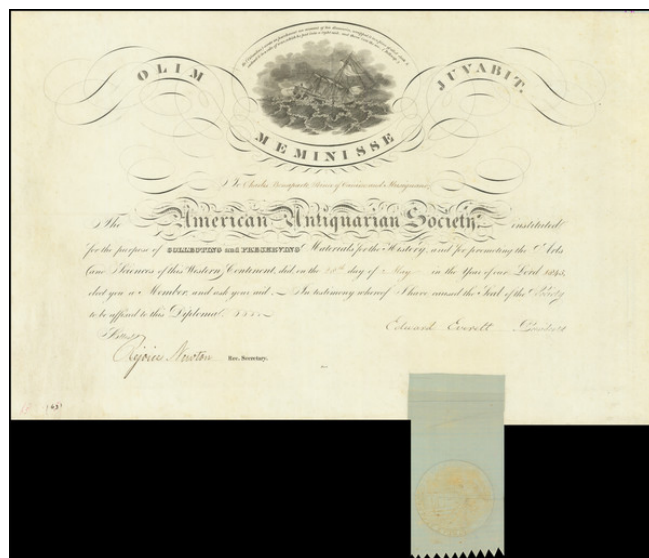 OLIM
JUVABIT.
MEMINISSE
To Charles Bonaparte Prince of Canino and Musignano,
The American Antiquarian Society, instituted
for the purpose of COLLECTING and PRESERVING Materials for the History, and for promoting the Arts
and Sciences of this Western Continent, did, on the day of May in the Year of our Lord 1843,
elect you a Member, and ask your aid. In testimony whereof I have caused the Seal of the Society
to be affixed to this Diploma.
Edward Everett President
Rejoice Newton Rec. Secretary.